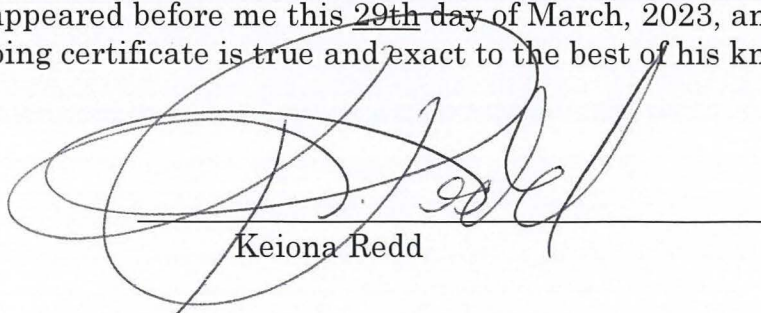 appeared before me this 29th day of March, 2023, an
oing certificate is true and exact to the best of his kn
Keiona Redd